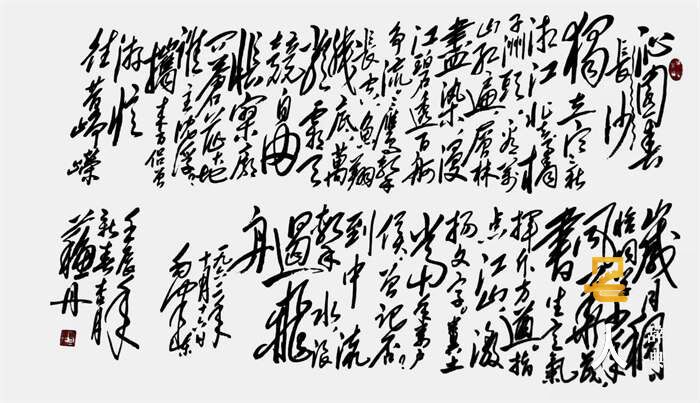 沁園春
長沙
獨立寒秋
湘江北去橘
子洲頭看萬
山紅遍層林
盡染漫
江碧透百舸
争流鷹擊
長空魚翔
淺底萬
類霜天
競自由
悵寥廓
問蒼茫大地
誰主沉浮
攜來百侣曾
游憶
往昔崢嶸
歲月稠
恰同學少年
風華正茂
書生意氣
揮斥方遒指
點江山激
揚文字糞土
當年萬户
侯曾記否
到中流
擊水浪
遏飛
舟
十月十六日
毛澤東
壬辰年
新春吉月